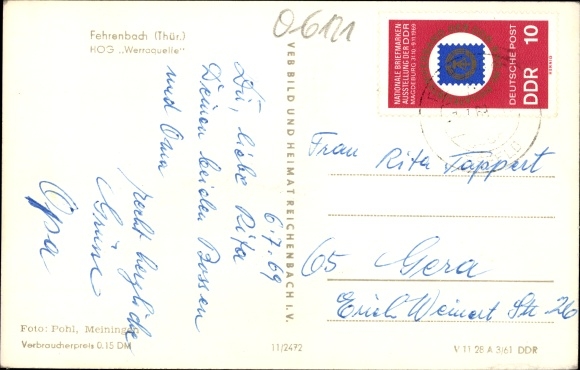 Fehrenbach (Thür.)
HOG „Werraquelle"
06121
6.7.69
Dir, liebe Rita
Deinen beiden Bossen
und Oma
recht herzliche
Grüße
Opa
VEB BILD UND HEIMAT REICHENBACH I. V.
NATIONALE BRIEFMARKEN
AUSSTELLUNG DER DDR
MAGDEBURG 31.10.-9.11.1969
DEUTSCHE POST
DDR 10
Frau Rita Tappert
65 Gera
Erich Weinert Str 26
Foto: Pohl, Meiningen
Verbraucherpreis 0.15 DM
11/2472
V 11 28 A 3/61 DDR